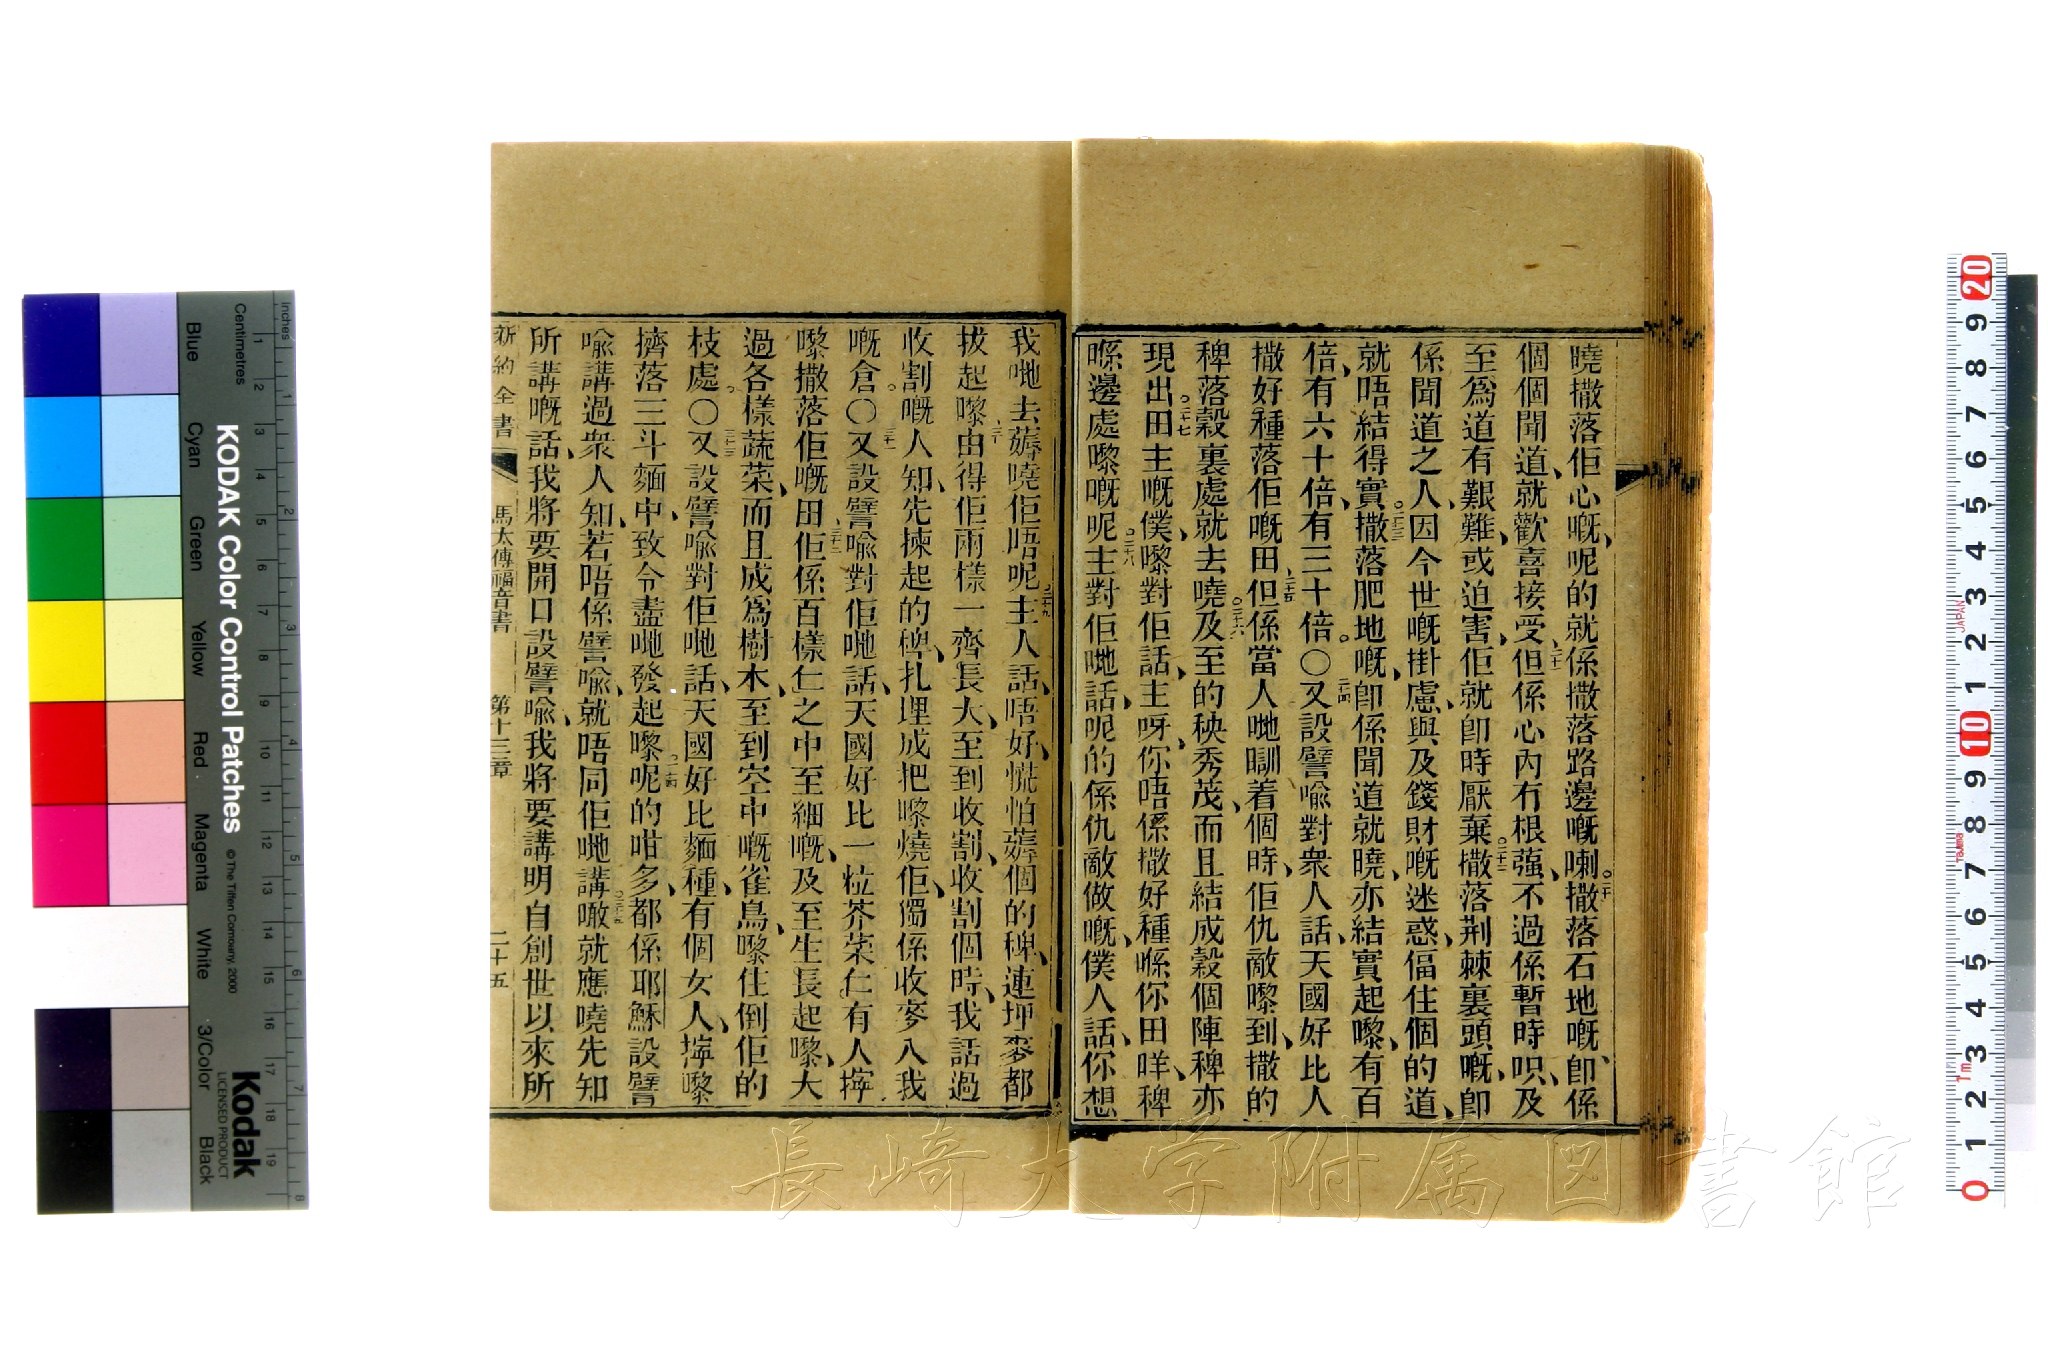 曉撒落佢心嘅、呢的就係撒落路邊嘅喇。二十撒落石地嘅、卽係
個個聞道、就歡喜接受、二十一但係心內冇根强、不過係暫時呮、及
至爲道有艱難、或迫害、佢就卽時厭棄。二十二撒落荆棘裏頭嘅、卽
係聞道之人、因今世嘅掛慮與及錢財嘅迷惑、偪住個的道、
就唔結得實。二十三撒落肥地嘅、卽係聞道就曉、亦結實起嚟、有百
倍、有六十倍、有三十倍。〇二十四又設譬喻對衆人話、天國好比人
撒好種落佢嘅田、二十五但係當人哋瞓着個時、佢仇敵嚟到、撒的
稗落穀裏處、就去曉。二十六及至的秧秀茂、而且結成穀個陣、稗亦
現出。二十七田主嘅僕、嚟對佢話、主呀、你唔係撒好種喺你田咩、稗
喺邊處嚟嘅呢。二十八主對佢哋話、呢的係仇敵做嘅、僕人話、你想
我哋去薅曉佢唔呢。二十九主人話、唔好、慌怕薅個的稗、連埋麥都
拔起嚟、三十由得佢兩樣一齊長大、至到收割、收割個時、我話過
收割嘅人知、先揀起的稗、扎埋成把嚟燒佢、獨係收麥入我
嘅倉。〇三十一又設譬喻對佢哋話、天國好比一粒芥菜仁、有人擰
嚟撒落佢嘅田、三十二佢係百樣仁之中至細嘅、及至生長起嚟、大
過各樣蔬菜、而且成爲樹木、至到空中嘅雀鳥、嚟住倒佢的
枝處。〇三十三又設譬喻對佢哋話、天國好比麵種、有個女人、擰嚟
擠落三斗麵中、致令盡哋發起嚟。三十四呢的咁多、都係耶穌設譬
喻講過衆人知、若唔係譬喻、就唔同佢哋講噉。三十五就應曉先知
所講嘅話、我將要開口設譬喻、我將要講明自創世以來所
新約全書 馬太傳福音書 第十三章 二十五
長崎大学附属図書館
KODAK Color Control Patches
© The Tiffen Company, 2000
Kodak
LICENSED PRODUCT
Inches
Centimetres
Blue Cyan Green Yellow Red Magenta White 3/Color Black
1 2 3 4 5 6 7 8
1 2 3 4 5 6 7 8 9 10 11 12 13 14 15 16 17 18 19
20 9 8 7 6 5 4 3 2 1 10 9 8 7 6 5 4 3 2 1 0
JAPAN
1m